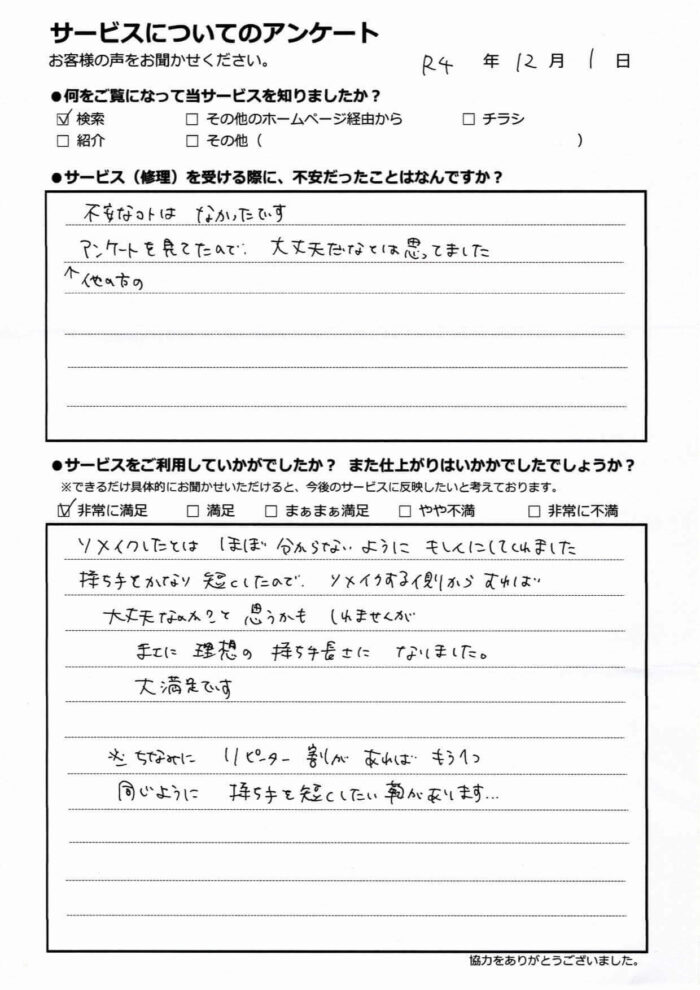 サービスについてのアンケート
お客様の声をお聞かせください。
R4 年 12 月 1 日
●何をご覧になって当サービスを知りましたか？
☑ 検索 □ その他のホームページ経由から □ チラシ
□ 紹介 □ その他（ ）
●サービス（修理）を受ける際に、不安だったことはなんですか？
不安なコトは なかったです
アンケートを見てたので、大丈夫だなとは思ってました
↑他の方の
●サービスをご利用していかがでしたか？ また仕上がりはいかかでしたでしょうか？
※できるだけ具体的にお聞かせいただけると、今後のサービスに反映したいと考えております。
☑ 非常に満足 □ 満足 □ まぁまぁ満足 □ やや不満 □ 非常に不満
リメイクしたとは ほぼ 分からない ように キレイにしてくれました
持ち手をかなり 短くしたので、リメイクする側から すれば
大丈夫なのか？と 思うかも しれませんが
まさに 理想の 持ち手長さに なりました。
大満足です
※ちなみに リピーター 割が あれば もう1つ
同じように 持ち手を短くしたい 鞄があります…
協力をありがとうございました。